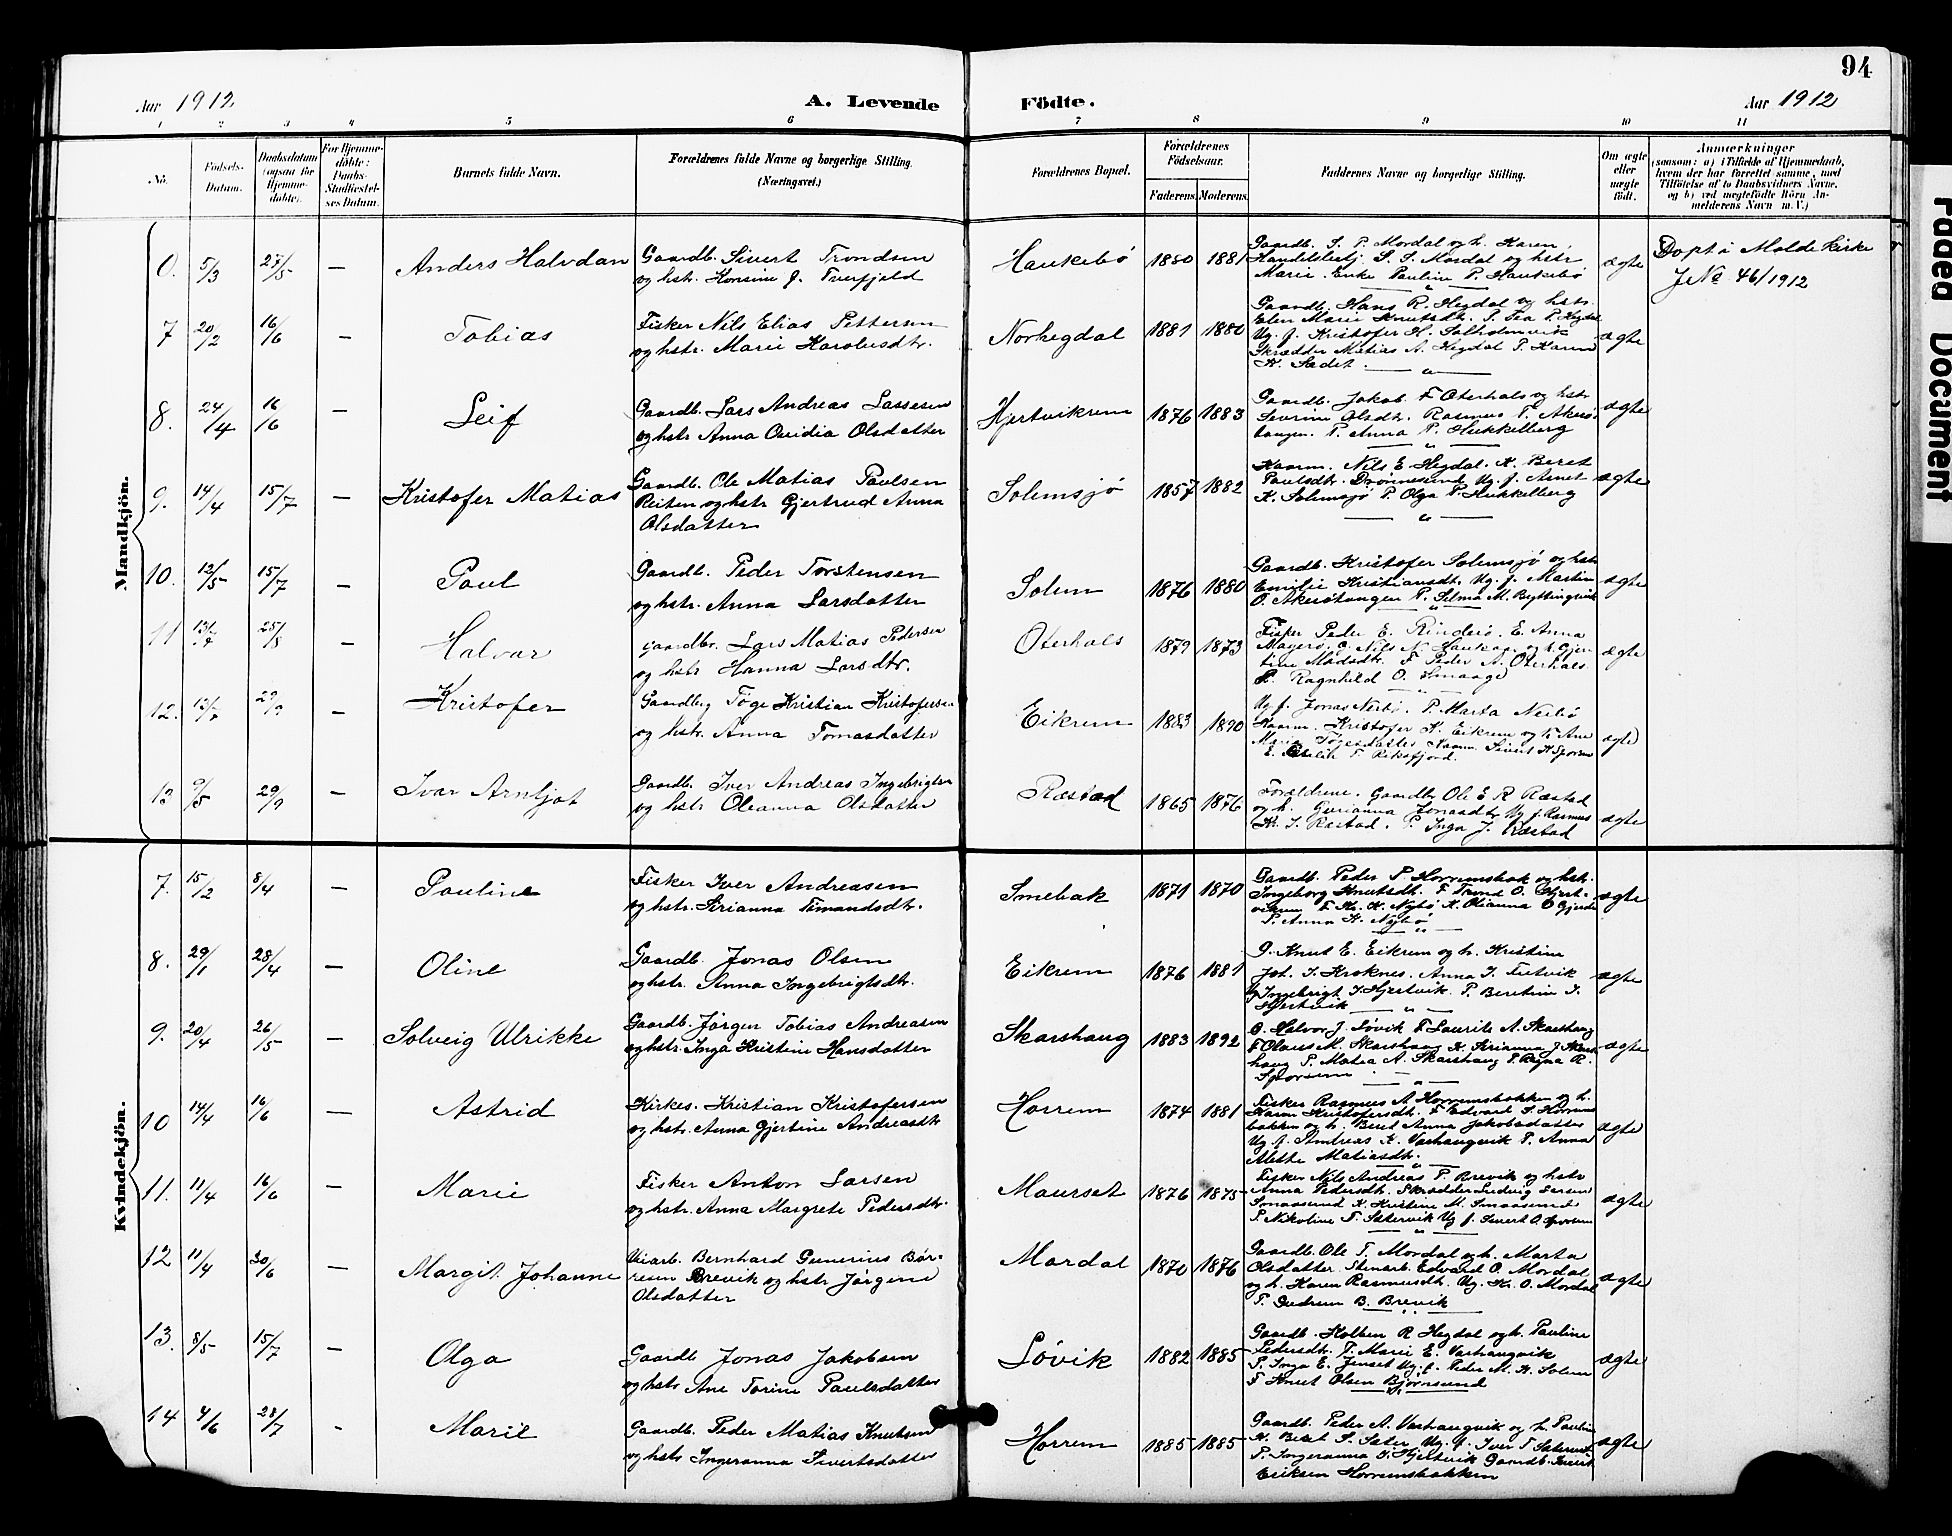 94
Aar 1912
A. Levende
Födte.
Aar 1912
1 2 3 4 5 6 7 8 9 10 11
No.
Födsels-
Datum.
Daabsdatum
(ogsaa for
Hjemme-
döbte).
For Hjemme-
döbte:
Daabs-
Stadfæstel-
ses Datum.
Barnets fulde Navn.
Forældrenes fulde Navne og borgerlige Stilling.
(Næringsvei.)
Forældrenes Bopæl.
Forældrenes
Födselsaar.
Faderens.
Moderens.
Faddernes Navne og borgerlige Stilling.
Om ægte
eller
uægte
födt.
Anmærkninger
(saasom: a) i Tilfælde af Hjemmedaab,
hvem der har forrettet samme, med
Tilföielse af to Daabsvidners Navne,
og b) ved uægtefödte Börn An-
melderens Navn m. V.)
Mandkjön.
0. 5/3 27/5 — Anders Halvdan
Gaardb. Sivert Trondsen
og hstr. Konsine J. Tverfjeld
Haukebö 1880 1881
Gaardb. S. P. Mordal og h. Karen,
Handelsbstj. S. S. Mordal og hstr
Marie. Enke Pauline P. Haukebö
ægte
Döpt i Molde kirke
J No 46/1912
7 20/2 16/6 — Tobias
Fisker Nils Elias Pettersen
og hstr. Marie Karolusdtr.
Norhegdal 1881 1880
Gaardb. Hans R. Hegdal og hstr.
Elen Marie Knutsdt. P. Fia P. Hegdal
Ug. f. Kristofer H. Solholmvik
Skrædder Matias A. Hegdal P. Karen
K. Sædet.
ægte
8. 24/4 16/6 — Leif
Gaardb. Lars Andreas Lassesen
og hstr Anna Ovidia Olsdatter
Hjertvikrem 1876 1883
Gaardb. Jakob F Oterhals og hstr
Severine Olsdt. Rasmus T. Akerö-
tangen. P. Anna P. Hukkelberg
ægte
9. 14/4 15/7 — Kristofer Matias
Gaardb. Ole Matias Paulsen
Reiten og hstr Gjertrud Anna
Olsdatter
Solemsjö 1857 1882
Kaarm. Nils E Hegdal. K. Beret
Paulsdt. Drönnesund Ug. f. Arnet
K. Solemsjö P. Olga P. Hukkelberg
ægte
10. 12/5 15/7 — Paul
Gaardb. Peder Torstensen
og hstr. Anna Larsdatter
Solem 1876 1880
Gaardb. Kristofer Solemsjö og hstr
Emilie Kristiansdt. Ug. f. Martin
O. Akerötangen P. Selma M. Byttingsvik
ægte
11 25/8 — Halvar
gaardbr. Lars Matias Pedersen
og hstr Hanna Larsdtr.
Oterhals 1879 1873
Fisker Peder E. Rinderö. E. Anna
Magerö. G. Nils N. og h. Gjer-
tine Madsdtr. F Peder A. Oterhals.
P. Ragnhild O. Smaage
ægte
12. — Kristofer
Gaardbrg Töge Kristian Kristofersen
og hstr. Anna Tomasdatter
Eikrem 1883 1890
Ug. f. Jonas Nerbö. P. Marta Nerbö
Kaarm. Kristofer K. Eikrem og h Ane
Marie Tögesdatter Kaarm. Sivert K Sporsem
E. F. Reksfjord.
ægte
13 9/5 29/9 — Ivar Arnljot
Gaardb. Iver Andreas Ingebrigtsen
og hstr Oleanna Olsdatter
Ræstad 1865 1876
Forældrene. Gaardbr Ole E R Ræstad
og h. Gurianna Jonasdtr Ug f. Rasmus
Kr. I. Ræstad. P. Inga J. Ræstad
ægte
Kvindekjön.
7. 15/2 8/4 — Pauline
Fisker Iver Andreasen
og hstr. Sirianna Simandsdtr.
Smebak 1871 1870
Gaardb. Peder P. Horremsbak og hstr.
Ingeborg Knutsdt. F Trond O. Hjert-
vikrem F. Kr. K. Nybö K. Olianna O Gjerde
P. Anna K. Nybö
ægte
8. 29/1 28/4 — Oline
Gaardb. Jonas Olsen
og hstr. Anna Ingebrigtsdt.
Eikrem 1876 1881
G. Knut E. Eikrem og h. Kristine
Joh. I. Kroknes. Anna I. Tutvik
Ug Ingebrigt I. Hjertvik. P. Beretine I.
Hjertvik
ægte
9. 20/4 26/5 — Solveig Ulrikke
Gaardb. Jörgen Tobias Andreasen
og hstr. Inga Kristine Hansdatter
Skarshaug 1883 1892
G. Halvor J. Lövik F Laurits A. Skarshaug
F Olaus M. Skarshaug K. Sirianna J Skars-
haug P. Matea A. Skarshaug P. Ragna R.
Sporsem
ægte
10 14/4 16/6 — Astrid
Kirkes. Kristian Kristofersen
og hstr. Anna Gjertine Andreasdtr
Horrem 1874 1881
Fisker Rasmus A Horremsbakken og h.
Karen Kristofersdt. F Edvard S. Horrems
bakken og h. Beret Anna Jakobsdatter
Ug. f. Andreas K. Varhaugvik P. Anna
Alette Matiasdt.
ægte
11. 11/4 16/6 — Marie
Fisker Anton Larsen
og hstr. Anna Margrete Pedersdtr.
Maurset 1876 1875
Fisker Nils Andreas P. Brevik og hstr
Anna Pedersdt. Skrædder Ludvig Larsen
Smaasund K. Kristine M. Smaasund
P. Nikoline T. Sætervik Ug f. Sivert O. Sporsem
ægte
12 11/4 30/6 — Margit Johanne
Veiarb. Bernhard Gunerius Bör-
resen Brevik og hstr Jörgine
Olsdatter
Mordal 1870 1876
Gaardb. Ole T. Mordal og h. Marta
Olsdatter Stenarb. Edvard O. Mordal
og h. Karen Rasmusdt. Ug. Kr. O. Mordal
P. Gudrun B. Brevik
ægte
13. 8/5 15/7 — Olga
Gaardb Jonas Jakobsen
og hstr Ane Torine Paulsdatter
Lövik 1882 1885
Gaardb. Kolben R Hegdal og h. Pauline
Pedersdt. P. Marie E. Varhaugvik
P. Inga E. Jenset Ug. f. Peder M. K. Solem
F Knut Olsen Björnsund
ægte
14 4/6 28/7 - Marie
Gaardb. Peder Matias Knutsen
og hstr Ingeranna Sivertsdatter
Horrem 1885 1885
Gaardb. Peder A. Varhaugvik og h. Pauline
K. Beret S. Sæter Ug. f. Iver T Sætervik
P. Ingeranna I. Hjertvik Gaardb. Sivert
Eriksen Horremsbakken
ægte
Faded Document